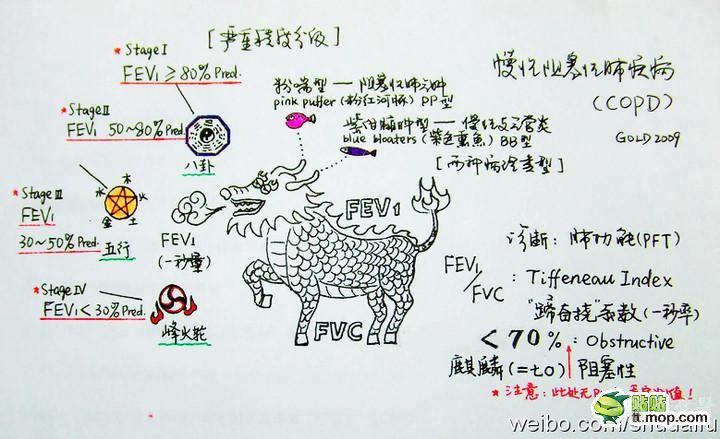 [严重程度分级]
*Stage I
FEV1 ≥ 80% Pred.
*Stage II
FEV1 50~80% Pred.
八卦
*Stage III
FEV1
30~50% Pred.
木
水 火
金 土
五行
*Stage IV
FEV1 < 30% Pred.
烽火轮
FEV1
(一秒量)
粉喘型—阻塞性肺气肿
pink puffer (粉红河豚) PP型
紫绀臃肿型—慢性支气管炎
blue bloaters (紫色熏鱼) BB型
[两种病理类型]
FEV1
FVC
慢性阻塞性肺疾病
(COPD)
GOLD 2009
诊断: 肺功能(PFT)
FEV1/FVC : Tiffeneau Index
"蹄奋挠"系数(一秒率)
< 70% : Obstructive
麒麟(=七〇) 阻塞性
*注意: 此处无
值!
贴贴
tt.mop.com
weibo.com/shudaifu